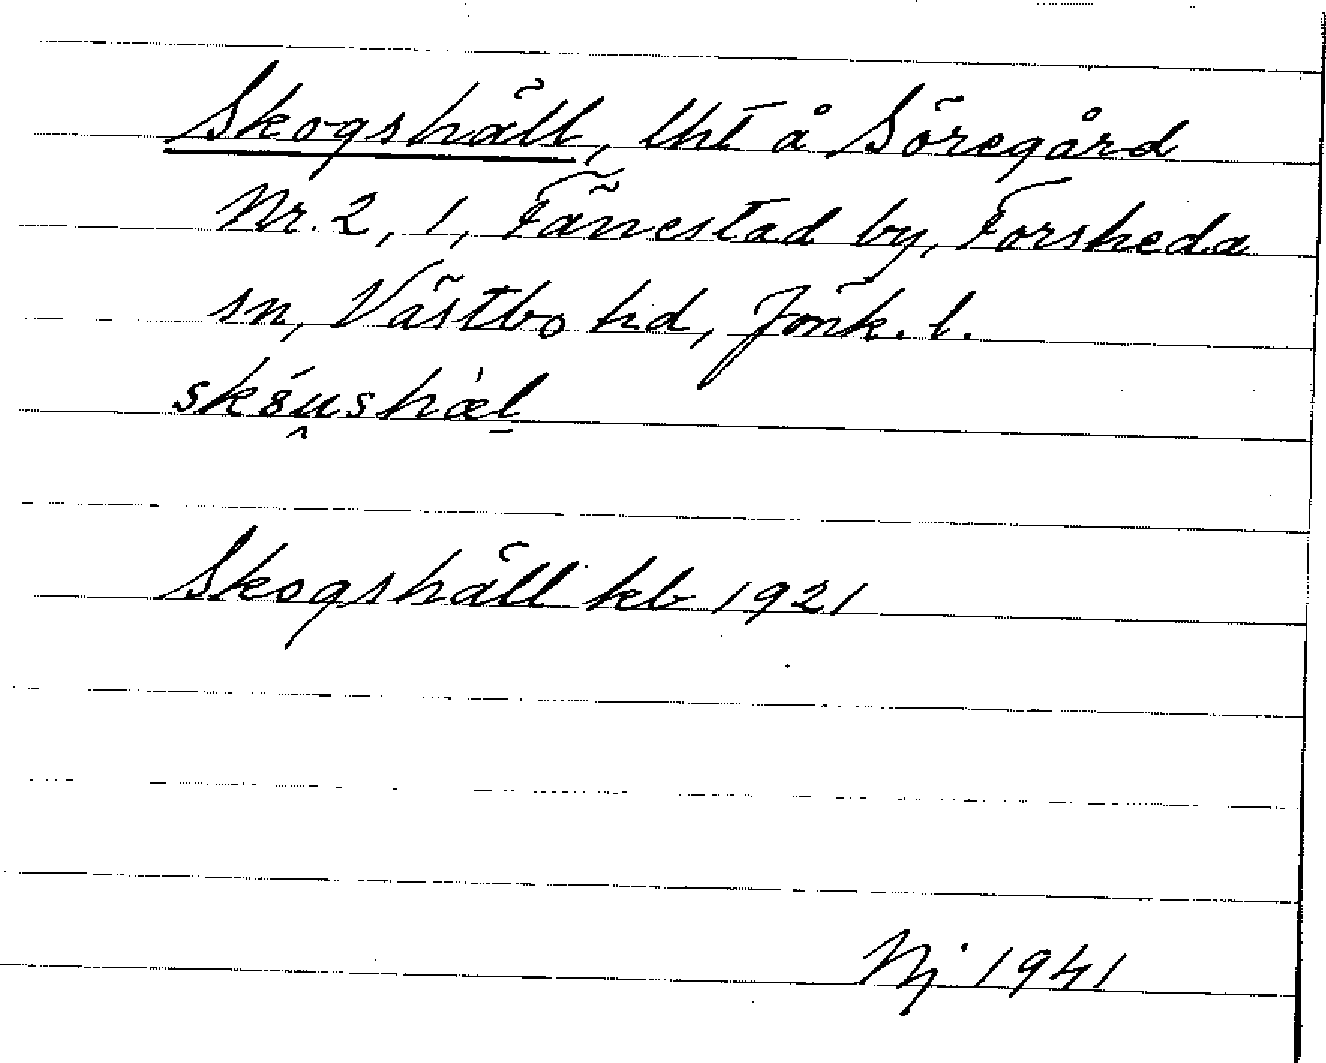 Skogshäll, lht å Söregård
Nr. 2, 1, Fänestad by, Forsheda
sn, Västbo hd, Jönk. l.
Skogshäll kb 1921
Nj 1941